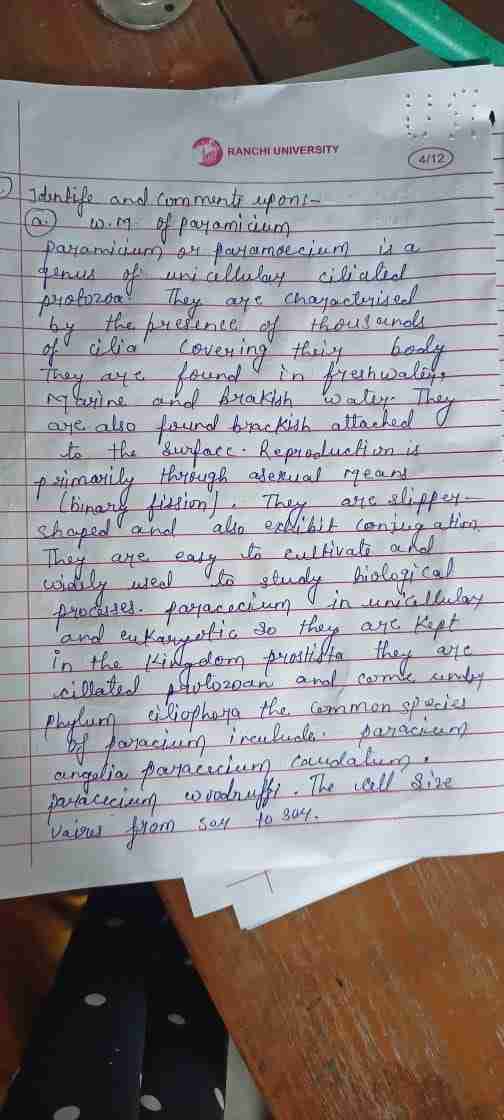 RANCHI UNIVERSITY
4/12
Identife and comments upon:-
a. W.M. of paramicium
paramicium or paramoecium is a
genus of unicellular ciliated
protozoa. They are characterised
by the presence of thousands
of cilia covering their body
They are found in freshwater,
Marine and brakish water. They
are also found brackish attached
to the surface. Reproduction is
primarily through asexual means
(binary fission). They are slipper-
shaped and also exhibit conjugation
They are easy to cultivate and
widely used to study biological
processes. paracecium in unicellular
and eukaryotic so they are kept
in the Kingdom prostista they are
cillated protozoan and come under
phylum ciliophora the common species
of paracium incclude. paracium
angelia paracecium caudatum.
paracecium woodruffi. The cell size
vairus from to